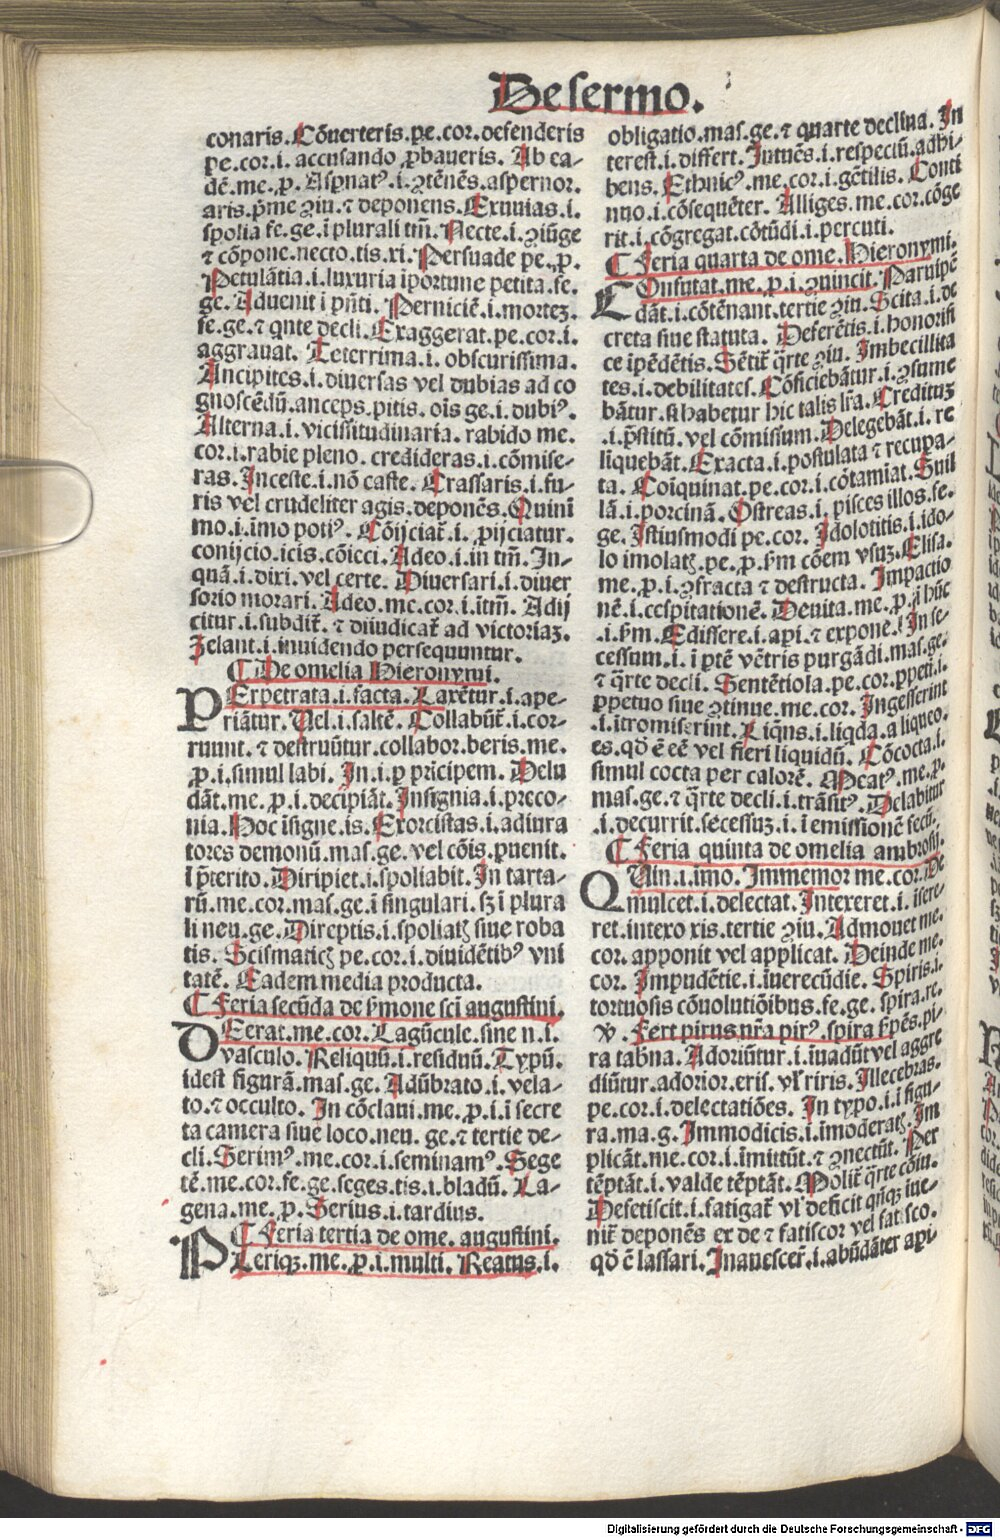 De sermo.
conaris. Cōuerteris.pe.cor.defenderis
pe.cor.i. accusando ꝓbaueris. Ab ea-
dē.me.ꝓ. Aspnatꝰ.i.ꝯtēnēs.aspernor.
aris.p̄me ꝯiu.⁊ deponens. Exuuias.i.
spolia fe.ge.i plurali tm̄. Necte.i.ꝯiūge
⁊ cōpone.necto.tis.xi. Persuade pe.ꝓ.
Petulātia.i.luxuria iportune petita.fe.
ge. Aduenit i pn̄ti. Perniciē.i.mortez.
fe.ge.⁊ qnte decli. Exaggerat.pe.cor.i.
aggrauat. Teterrima.i. obscurissima.
Ancipites.i.diuersas vel dubias ad co
gnoscēdū.anceps.pitis. oīs ge.i.dubiꝰ.
Alterna.i. vicissitudinaria. rabido me.
cor.i.rabie pleno. credideras.i.cōmise-
ras. Inceste.i.nō caste. Crassaris.i.fu-
ris vel crudeliter agis.deponēs. Quini
mo.i.īmo potiꝰ. Cōijciat᷑.i. ꝓijciatur.
conijcio.icis.cōieci. Adeo.i.in tm̄. In-
quā.i.dixi.vel certe. Diuersari.i.diuer
sorio morari. Adeo.me.cor.i.itm̄. Adij
citur.i.subdit᷑. ⁊ diiudicat᷑ ad victoriaꝫ.
Zelant.i.inuidendo persequuntur.
¶ De omelia Hieronymi.
PErpetrata.i.facta. Laxētur.i.ape-
riātur. Vel.i.saltē. Collabūt᷑.i.cor-
ruunt.⁊ destruūtur.collabor.beris.me.
ꝓ.i.simul labi. In.i.ꝑ pricipem. Delu
dāt.me.ꝓ.i.decipiāt. Insignia.i.preco-
nia. Hoc īsigne.is. Exorcistas.i.adiura
tores demonū.mas.ge.vel cōis.ꝓuenit.
ī p̄terito. Diripiet.i.spoliabit. In tarta-
rū.me.cor.mas.ge.ī singulari.sꝫ ī plura
li neu.ge. Direptis.i.spoliatꝫ siue roba
tis. Scismaticꝫ pe.cor.i.diuidētibꝰ vni
tatē. Eadem media producta.
¶ Feria secūda de sꝰmone sci augustini.
DEerat.me.cor. Lagūcule.sine n.i.
vasculo. Reliquū.i.residuū. Typū.
idest figurā.mas.ge. Adūbrato.i.vela-
to.⁊ occulto. In cōclaui.me.ꝓ.i.ī secre
ta camera siue loco.neu.ge.⁊ tertie de-
cli. Serimꝰ.me.cor.i.seminamꝰ. Sege
tē.me.cor.fe.ge.seges.tis.i.bladū. La-
gena.me.ꝓ. Serius.i.tardius.
¶ Feria tertia de ome. augustini.
PLeriqꝫ.me.ꝓ.i.multi. Reatus.i.
obligatio.mas.ge.⁊ quarte declina. In
terest.i.differt. Intuēs.i.respectū.adhi-
bens. Ethnicꝰ.me.cor.i.gētilis. Conti
nuo.i.cōsequēter. Alliges.me.cor.cōge
rit.i.cōgregat.cōtūdi.i.percuti.
¶ Feria quarta de ome. Hieronymi.
COnfutat.me.ꝓ.i.ꝯuincit. Paruipē
dāt.i.cōtēnant.tertie ꝯiu. Scita.i.de
creta siue statuta. Deferētis.i.honorifi
ce ipēdētis. Sētit᷑ q̄rte ꝯiu. Imbecillita
tes.i.debilitates. Cōficiebātur.i.ꝯsume
bātur.si habetur hic talis lr̄a. Credituꝫ
.i.p̄stitū.vel cōmissum. Delegebāt.i.re
liquebāt. Exacta.i.postulata ⁊ recupa-
ta. Coīquinat.pe.cor.i.cōtamiat. Suil
lā.i.porcinā. Ostreas.i.pisces illos.fe.
ge. Istiusmodi pe.cor. Idolotitis.i.ido-
lo imolatꝫ.pe.ꝓ.ꝑm cōem vsuꝫ. Elisa.
me.ꝓ.i.ꝯfracta ⁊ destructa. Impactio
nē.i.cespitationē. Deuita.me.ꝓ.
.i.ꝑm. Edissere.i.api.⁊ expone. In se-
cessum.i.ī ptē vētris purgādi.mas.ge.
⁊ q̄rte decli. Sentētiola.pe.cor.ppeti.i.
ppetuo siue ꝯtinue.me.cor. Ingesserint
.i.itromiserint. Liqns.i.liqda.a liqueo.
es.qd̄ ē eē vel fieri liquidū. Cōcocta.i.
simul cocta per calorē. Meatꝰ.me.ꝓ.
mas.ge.⁊ q̄rte decli.i.trāsitꝰ. Delabitur
.i.decurrit.secessuꝫ.i.ī emissionē
¶ Feria quinta de omelia ambrosij.
QUin.i.imo. Immemor me.cor. De
mulcet.i.delectat. Intexeret.i.isere-
ret.intexo xis.tertie ꝯiu. Admonet me.
cor. apponit vel applicat. Deinde me.
cor. Impudētie.i.īuerecūdie. Spiris.i.
tortuosis cōuolutiōibus.fe.ge.spira.re.
℣. Fert pirus nr̄a pirꝰ.spira pi-
ra tabna. Adoriūtur.i.inuadūt vel aggre
diūtur.adorior.eris. vl̄ riris. Illecebras.
pe.cor.i.delectatiōes. In typo.i.ī figu-
ra.ma.g. Immodicis.i.īmoderatꝫ. Im
plicāt.me.cor.i.īmittūt.⁊ ꝯnectūt. Per
tēptāt.i.valde tēptāt. Molit᷑ q̄rte cōiu.
Defetiscit.i.fatigat᷑ vl̄ deficit inue-
nit᷑ deponēs ex de ⁊ fatiscor vel fatisco.
qd̄ ē lassari. Inauescer̄.i.abūdāter api
Digitalisierung gefördert durch die Deutsche Forschungsgemeinschaft - DFG